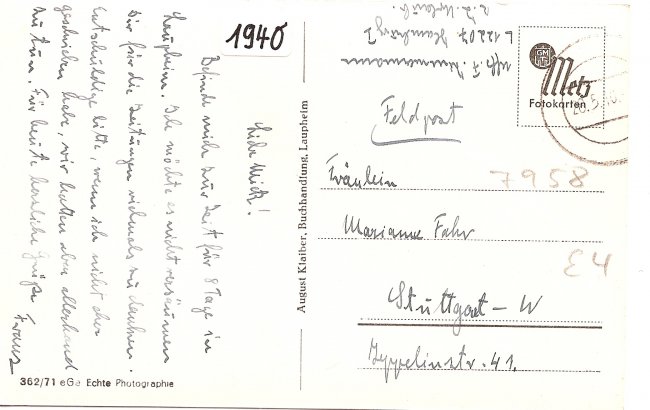 1940
Liebe Mietz!
Befinde mich zur Zeit für 8 Tage in
Laupheim. Ich möchte es nicht versäumen
Dir für die Zeitungen vielmals zu danken.
Entschuldige bitte, wenn ich nicht eher
geschrieben habe, wir hatten aber allerhand
zu tun. Für heute herzliche Grüße
Franz
362/71 eGe Echte Photographie
August Klaiber, Buchhandlung, Laupheim
Uffz. F.
L 12207
z. Z. Urlaub.
Feldpost
GMT
Metz
Fotokarten
Fräulein
7958
Marianne Fahr
E4
Stuttgart - W
Zeppelinstr. 41.